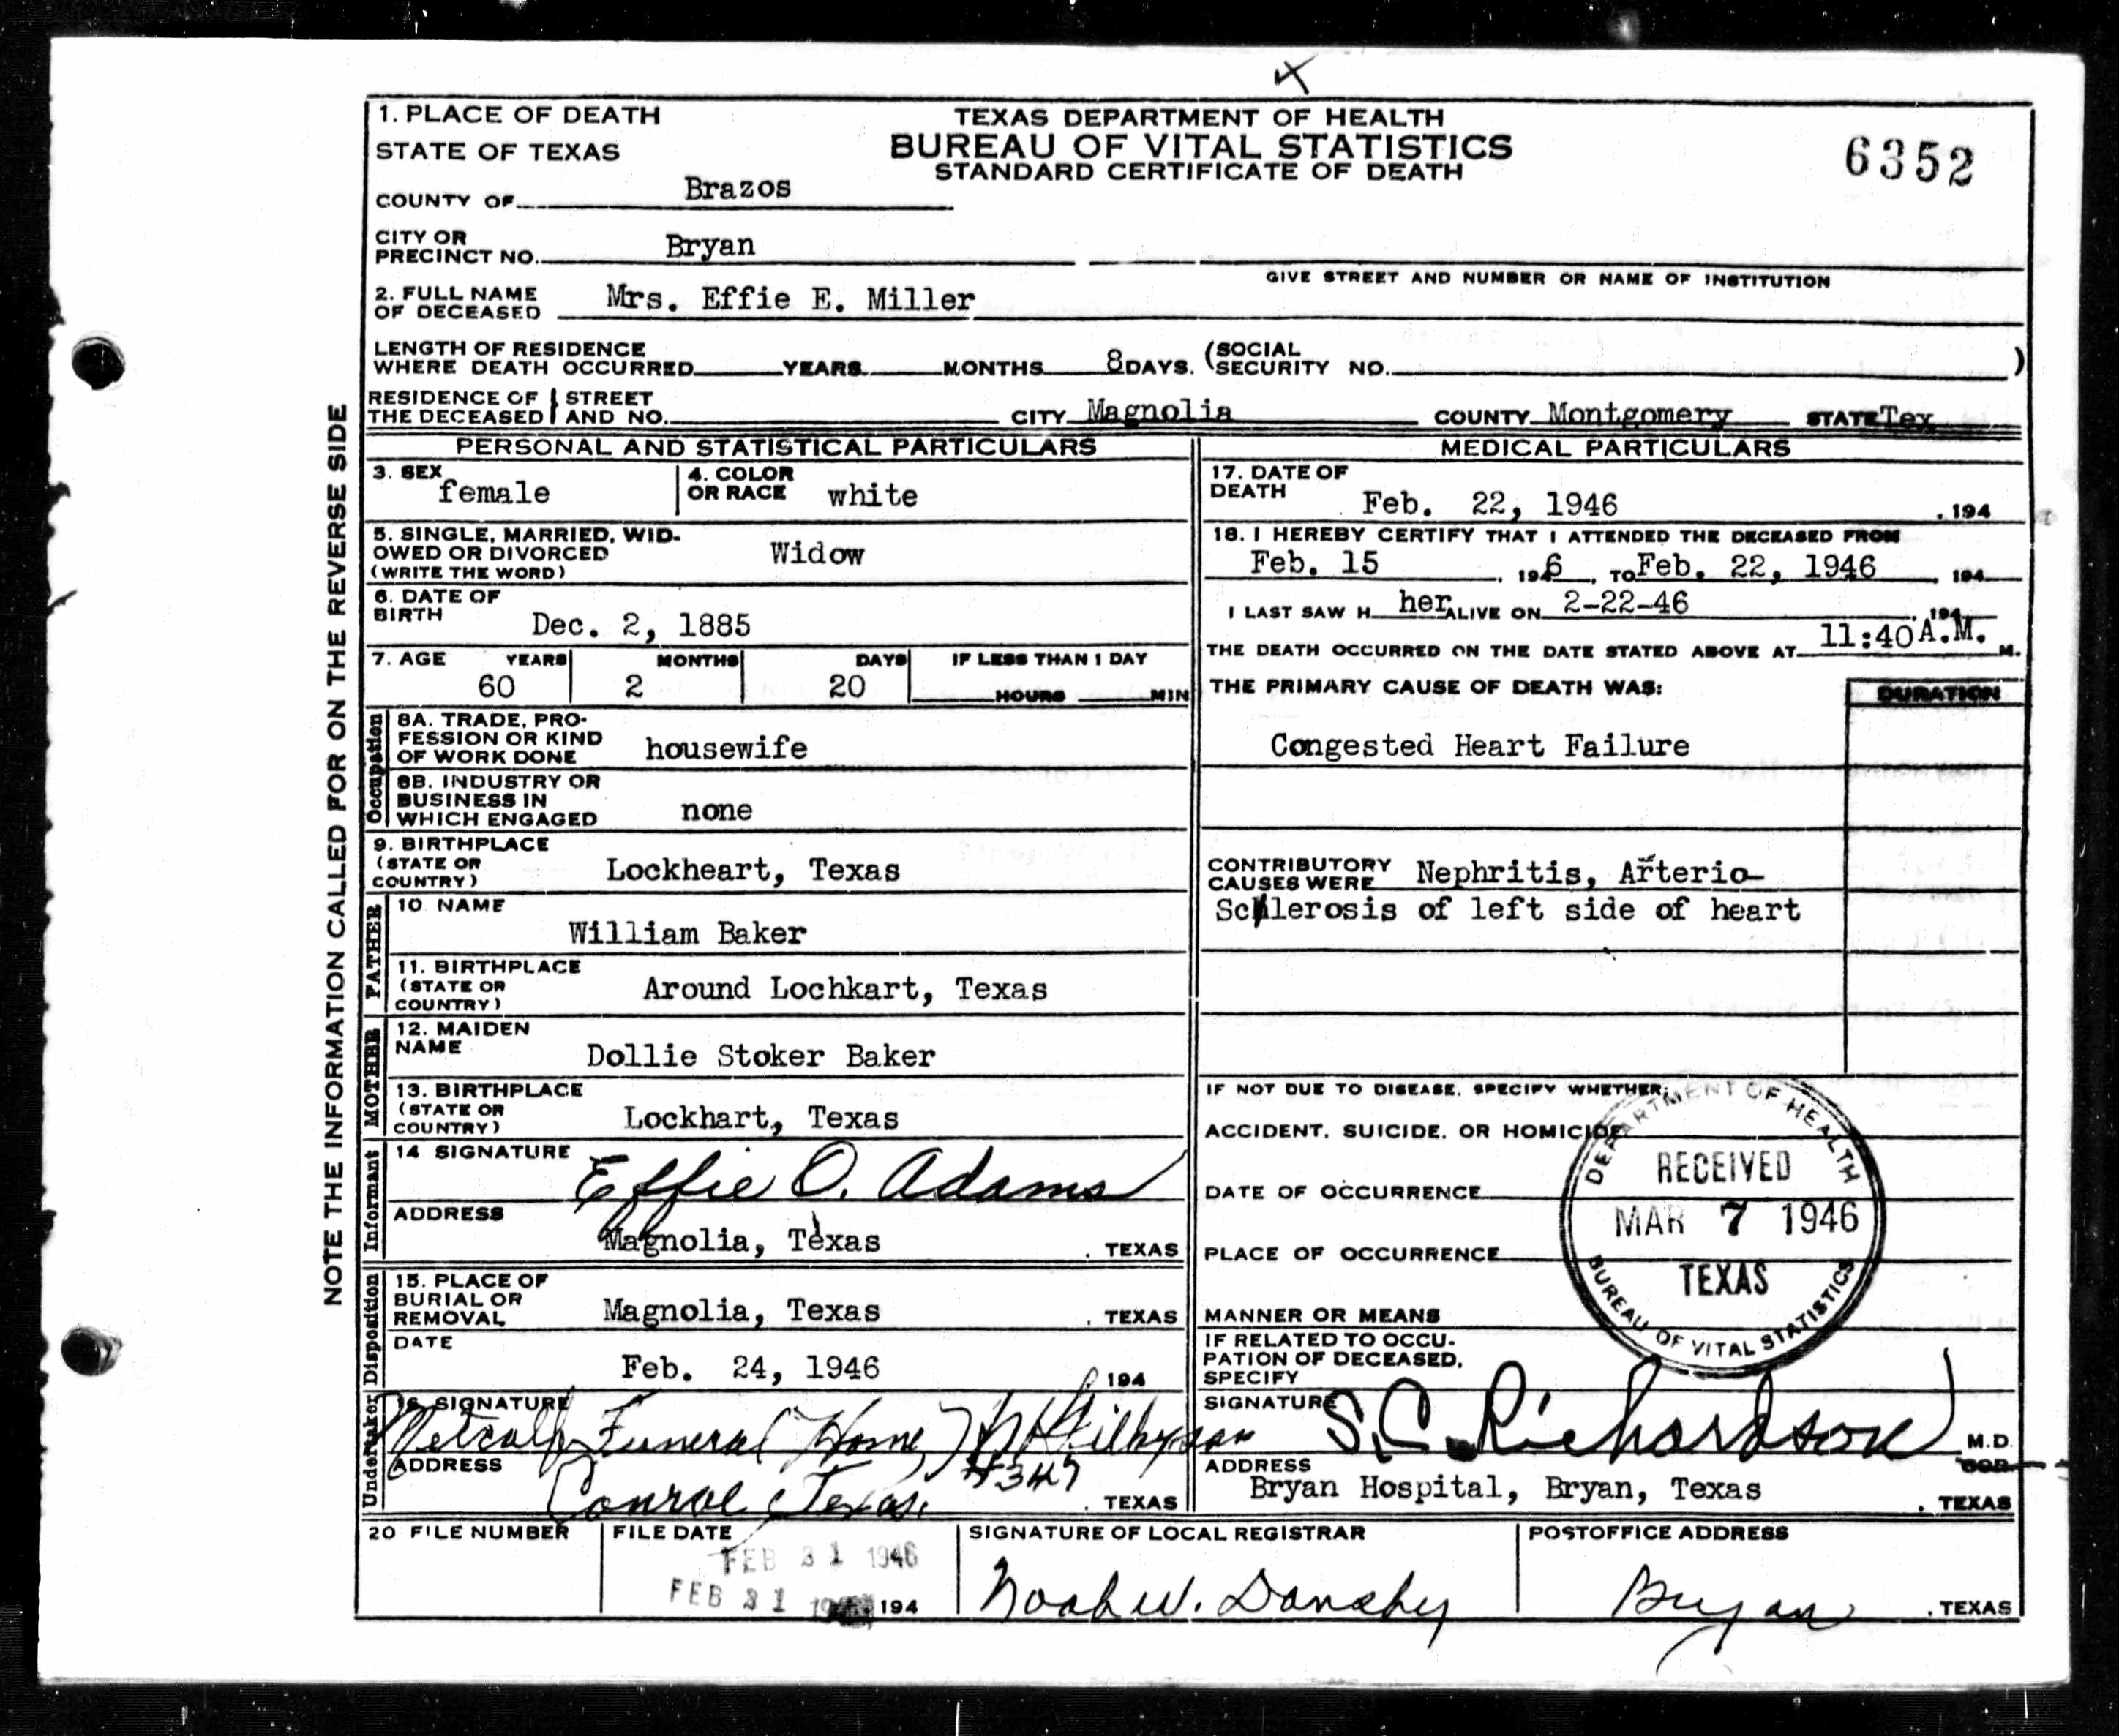 1. PLACE OF DEATH
STATE OF TEXAS
COUNTY OF Brazos
TEXAS DEPARTMENT OF HEALTH
BUREAU OF VITAL STATISTICS
STANDARD CERTIFICATE OF DEATH
6352
CITY OR
PRECINCT NO. Bryan
GIVE STREET AND NUMBER OR NAME OF INSTITUTION
2. FULL NAME
OF DECEASED Mrs. Effie E. Miller
LENGTH OF RESIDENCE
WHERE DEATH OCCURRED YEARS MONTHS 8 DAYS. (SOCIAL
SECURITY NO. )
RESIDENCE OF THE DECEASED STREET AND NO. CITY Magnolia COUNTY Montgomery STATE Tex
NOTE THE INFORMATION CALLED FOR ON THE REVERSE SIDE
PERSONAL AND STATISTICAL PARTICULARS
3. SEX female
4. COLOR
OR RACE white
5. SINGLE, MARRIED, WID-
OWED OR DIVORCED
(WRITE THE WORD) Widow
6. DATE OF
BIRTH Dec. 2, 1885
7. AGE YEARS MONTHS DAYS IF LESS THAN 1 DAY
60 2 20 HOURS MIN
Occupation
8A. TRADE, PRO-
FESSION OR KIND
OF WORK DONE housewife
8B. INDUSTRY OR
BUSINESS IN
WHICH ENGAGED none
9. BIRTHPLACE
(STATE OR
COUNTRY) Lockheart, Texas
FATHER
10 NAME
William Baker
11. BIRTHPLACE
(STATE OR
COUNTRY) Around Lochkart, Texas
MOTHER
12. MAIDEN
NAME Dollie Stoker Baker
13. BIRTHPLACE
(STATE OR
COUNTRY) Lockhart, Texas
Informant
14 SIGNATURE Effie O. Adams
ADDRESS
Magnolia, Texas , TEXAS
Disposition
15. PLACE OF
BURIAL OR
REMOVAL Magnolia, Texas , TEXAS
DATE
Feb. 24, 1946 194
Undertaker
16 SIGNATURE
Metcalf Funeral Home
ADDRESS #347
Conroe Texas. , TEXAS
MEDICAL PARTICULARS
17. DATE OF
DEATH Feb. 22, 1946 , 194
18. I HEREBY CERTIFY THAT I ATTENDED THE DECEASED FROM
Feb. 15 , 1946, TO Feb. 22, 1946 , 194
I LAST SAW H her ALIVE ON 2-22-46 , 194
THE DEATH OCCURRED ON THE DATE STATED ABOVE AT 11:40 A.M. M.
THE PRIMARY CAUSE OF DEATH WAS: DURATION
Congested Heart Failure
CONTRIBUTORY
CAUSES WERE Nephritis, Arterio-
Sclerosis of left side of heart
IF NOT DUE TO DISEASE, SPECIFY WHETHER:
ACCIDENT, SUICIDE, OR HOMICIDE
DATE OF OCCURRENCE
PLACE OF OCCURRENCE
MANNER OR MEANS
IF RELATED TO OCCU-
PATION OF DECEASED,
SPECIFY
DEPARTMENT OF HEALTH
RECEIVED
MAR 7 1946
TEXAS
BUREAU OF VITAL STATISTICS
SIGNATURE S.C. Richardson M.D.
ADDRESS
Bryan Hospital, Bryan, Texas , TEXAS
20 FILE NUMBER
FILE DATE
FEB 21 1946
FEB 21 194
SIGNATURE OF LOCAL REGISTRAR
Noah W. Dansby
POSTOFFICE ADDRESS
Bryan , TEXAS